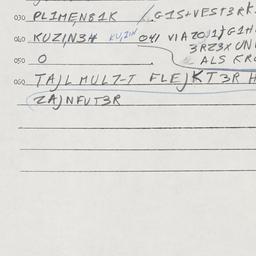 030 PL1MEN81K / G1S+VEST3RK
040 KUZ1N34 KUZIN 041 VIA201)G1H
3RZ3X UNU
050 O ALS KRO
060 TAJL MUL7-T FLEJKT3R H
ZAJNFUT3R